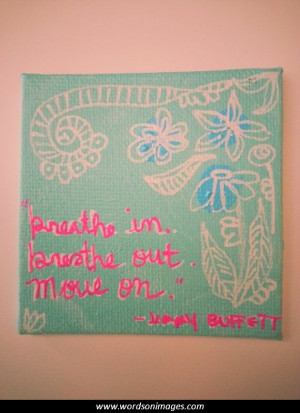 "breathe in.
breathe out.
move on."
- Jimmy BUFFETT
www.wordsonimages.com